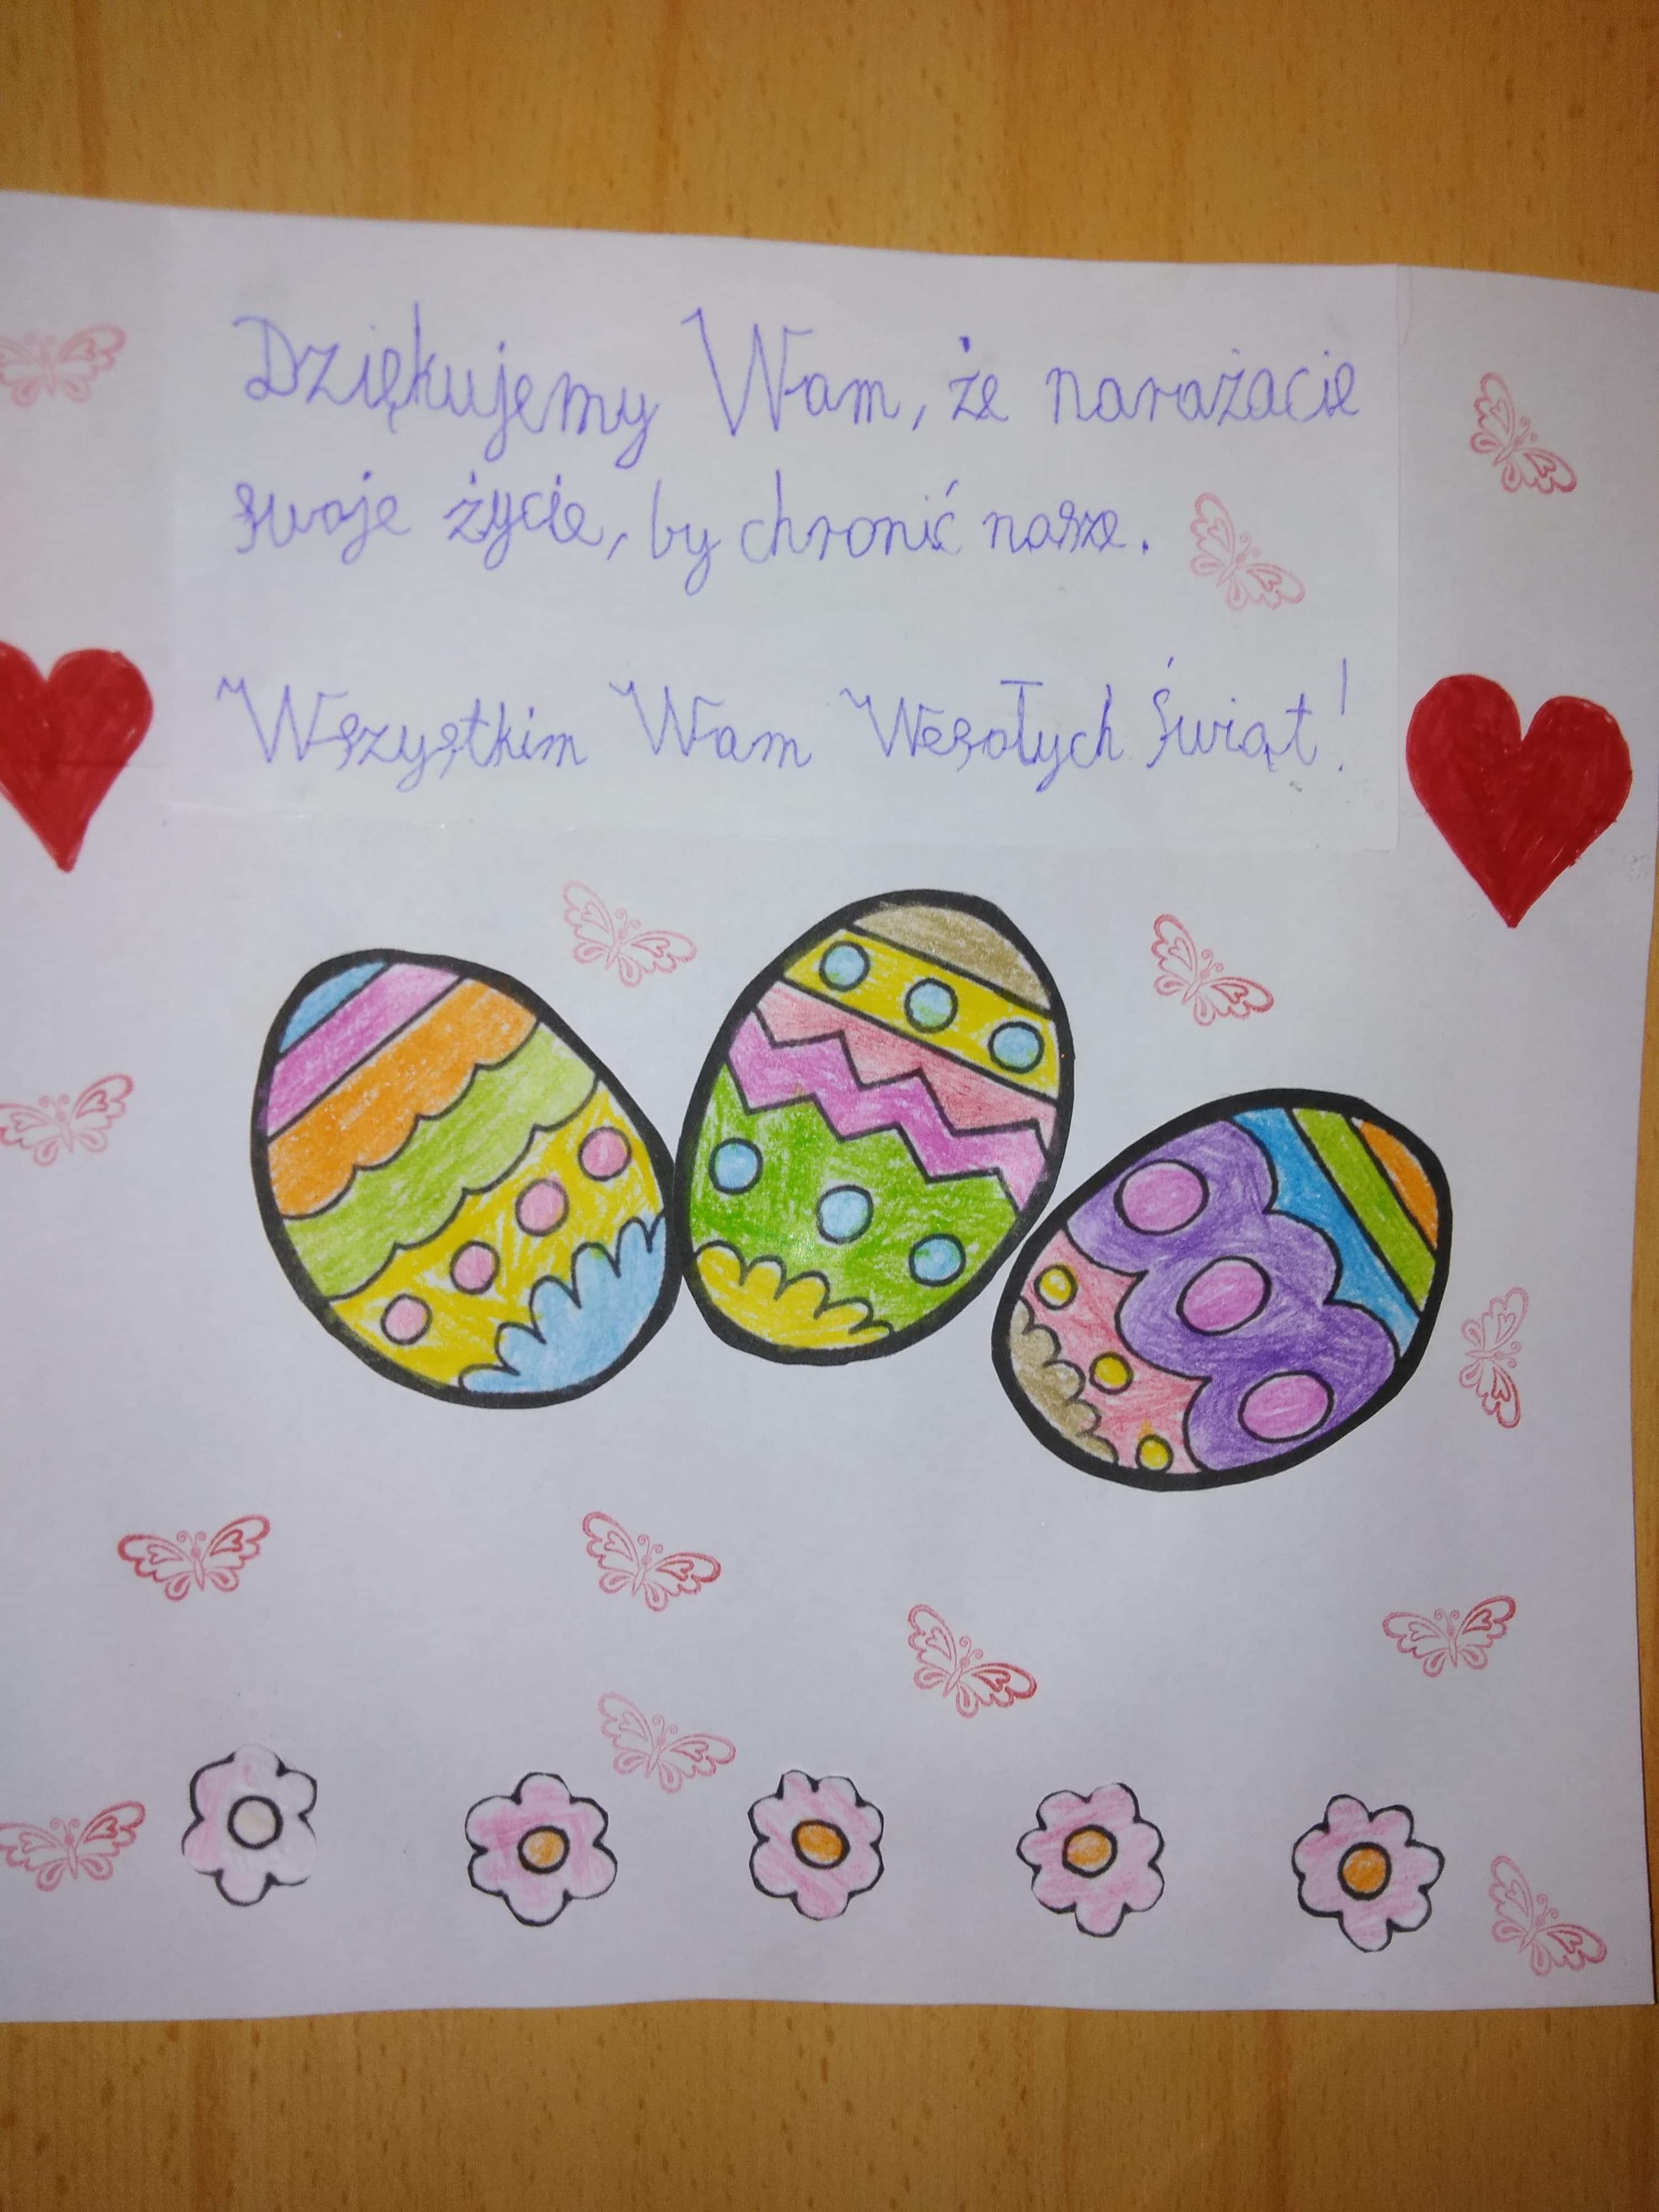 Dziękujemy Wam, że narażacie
swoje życie, by chronić nasze.
Wszystkim Wam Wesołych Świąt!